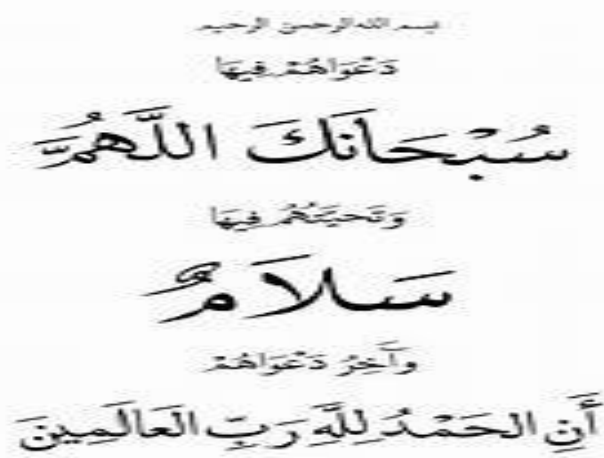 بسم الله الرحمن الرحيم
دَعْوَاهُمْ فِيهَا
سُبْحَانَكَ اللَّهُمَّ
وَتَحِيَّتُهُمْ فِيهَا
سَلَامٌ
وَآخِرُ دَعْوَاهُمْ
أَنِ الْحَمْدُ لِلَّهِ رَبِّ الْعَالَمِينَ